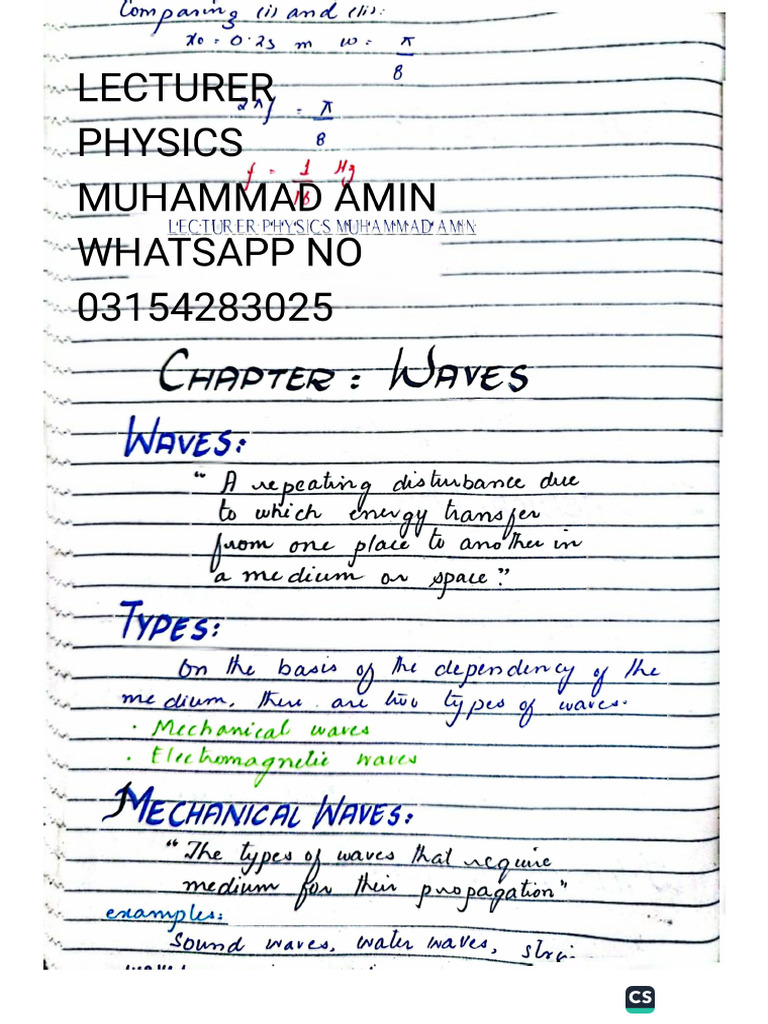 Comparing (i) and (ii):
x0 = 0.25 m w = π/8
2πf = π/8
f = 1/16 Hz
LECTURER
PHYSICS
MUHAMMAD AMIN
LECTURER PHYSICS MUHAMMAD AMIN
WHATSAPP NO
03154283025
CHAPTER: WAVES
WAVES:
“ A repeating disturbance due
to which energy transfer
from one place to another in
a medium or space”
TYPES:
On the basis of the dependency of the
medium, there are two types of waves.
· Mechanical waves
· Electromagnetic waves
MECHANICAL WAVES:
“The types of waves that require
medium for their propagation”
examples:
Sound waves, water waves,
CS